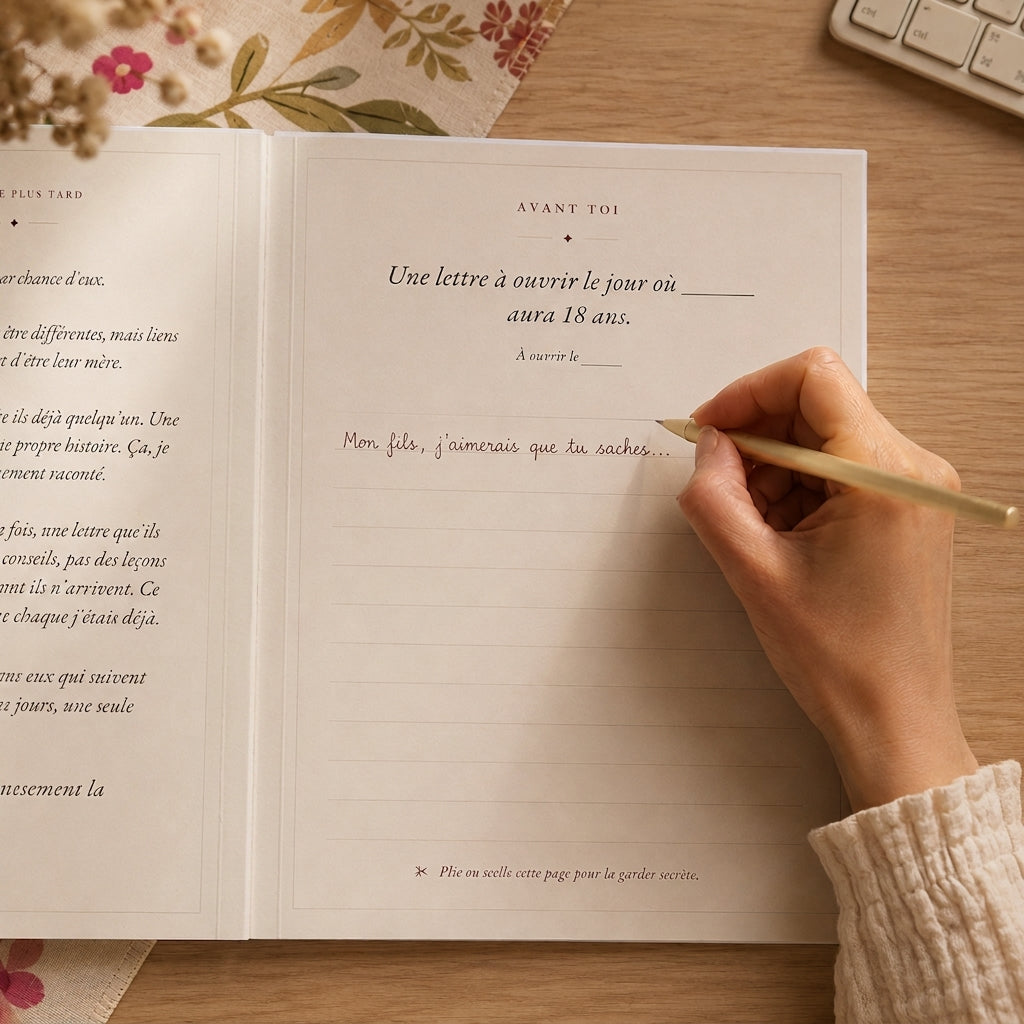 E PLUS TARD
ar chance d'eux.
être différentes, mais liens
t d'être leur mère.
e ils déjà quelqu'un. Une
ie propre histoire. Ça, je
nement raconté.
fois, une lettre que ils
conseils, pas des leçons
ils n'arrivent. Ce
e chaque j'étais déjà.
eux qui suivent
jours, une seule
nesement la
AVANT TOI
Une lettre à ouvrir le jour où ______
aura 18 ans.
À ouvrir le ______
Mon fils, j'aimerais que tu saches...
Plie ou scelle cette page pour la garder secrète.
ctrl
ctrl
⌘